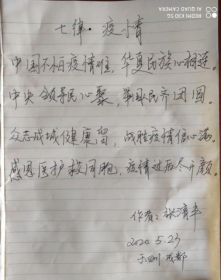 七律·疫情
中国不怕疫情难，华夏民族心相连。
中央领导民心聚，全民齐团圆。
众志成城健康留，战胜疫情信心满。
感恩医护救同胞，疫情过后尽开颜。
作者：张清丰
2020.5.23
于四川成都
REDMI
AI QUAD CAMERA